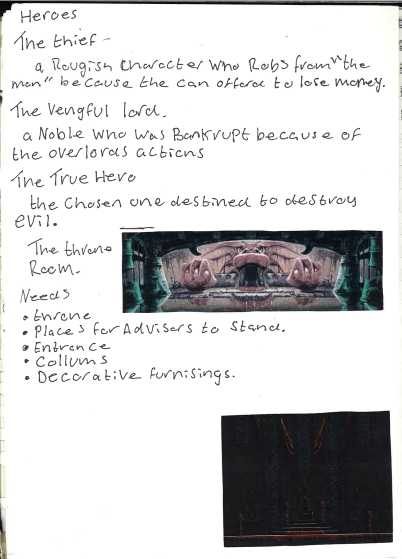 Heroes
The thief -
a Rougish character who Robs from "the
man" because the can afford to lose money.
The Vengful lord.
a Noble who was Bankrupt because of
the overlords actions
The True Hero
the Chosen one destined to destroy
evil.
The throne
Room.
Needs
• throne
• Places for Advisers to stand.
• Entrance
• Collums
• Decorative furnisings.